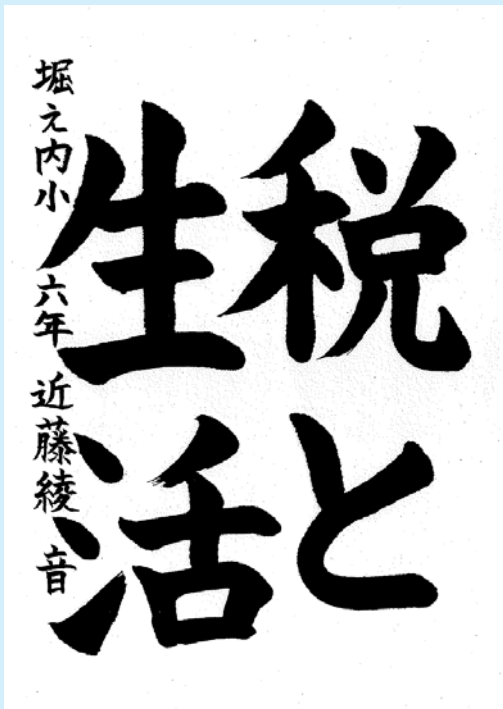 税と
生活
堀之内小 六年 近藤綾音